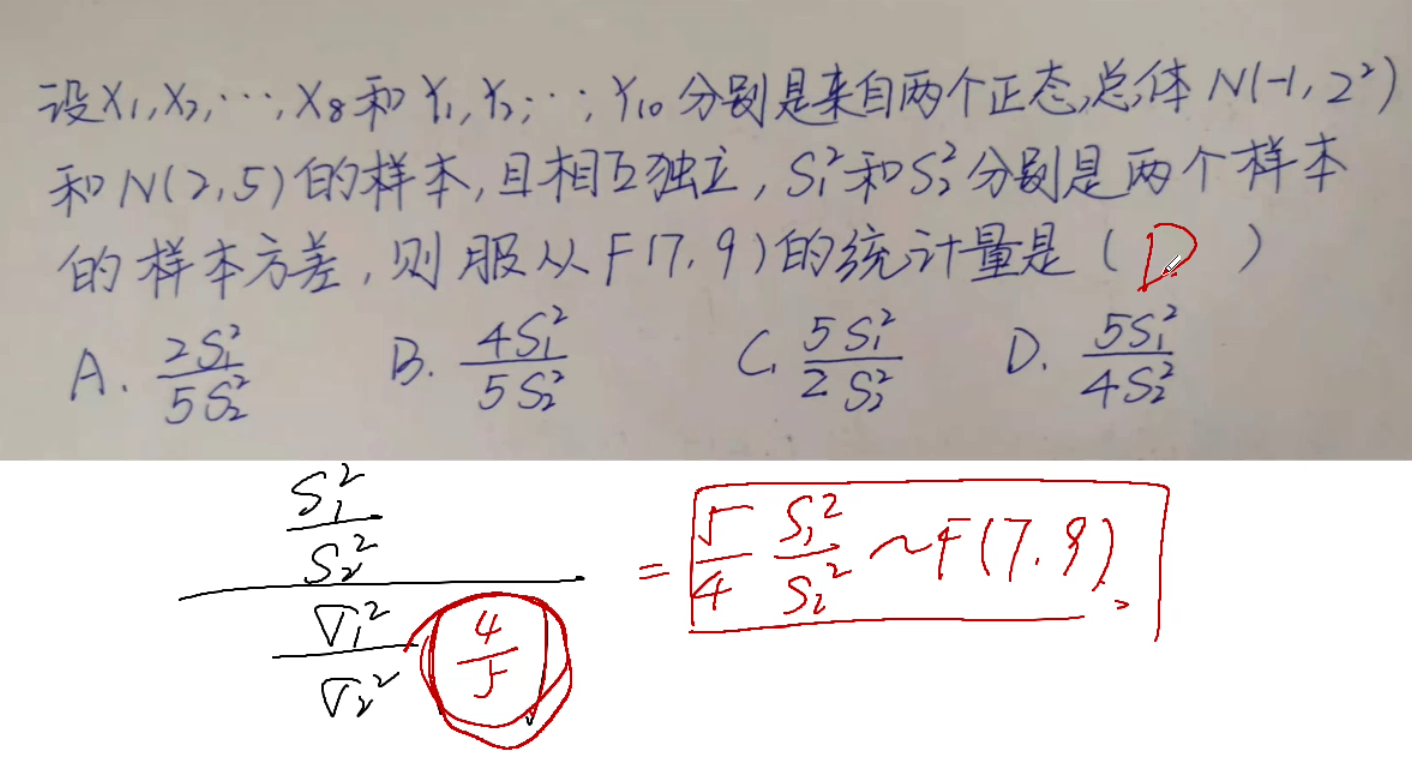 设X₁,X₂,…,X₈和Y₁,Y₂,…,Y₁₀分别是来自两个正态总体N(-1,2²)
和N(2,5)的样本,且相互独立,S₁²和S₂²分别是两个样本
的样本方差,则服从F(7,9)的统计量是( D )
A. 2S₁²/5S₂² B. 4S₁²/5S₂² C. 5S₁²/2S₂² D. 5S₁²/4S₂²
(S₁²/S₂²)/(σ₁²/σ₂²) 4/5 = 5/4 S₁²/S₂² ~F(7,9).